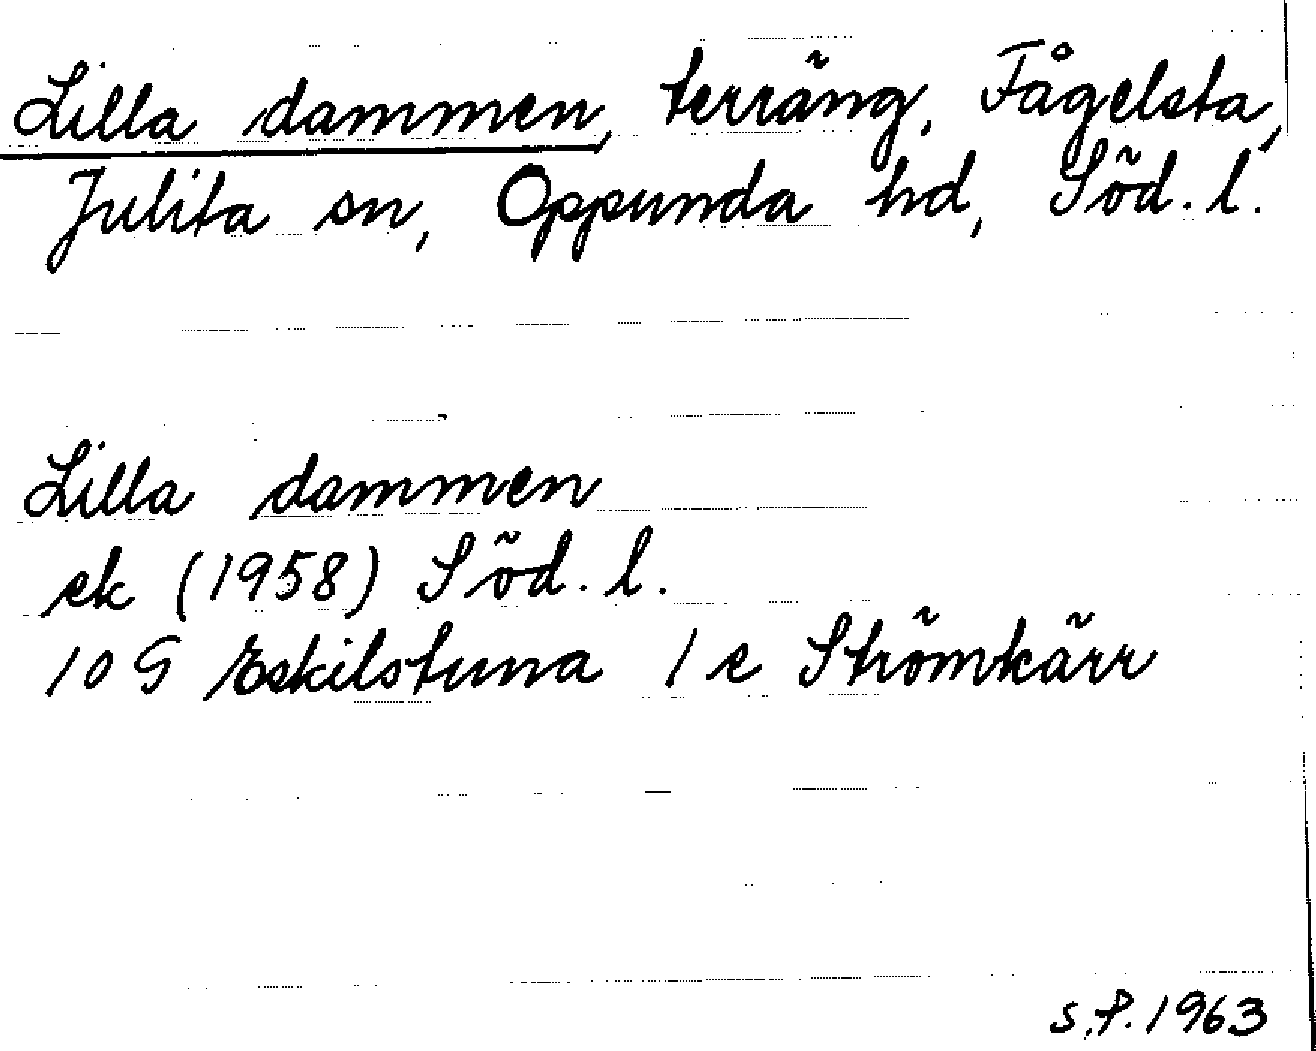 Lilla dammen, terräng, Fågelsta,
Julita sn, Oppunda hd, Söd. l.
Lilla dammen
ek (1958) Söd. l.
10 G Eskilstuna 1 e Strömkärr
S.P. 1963